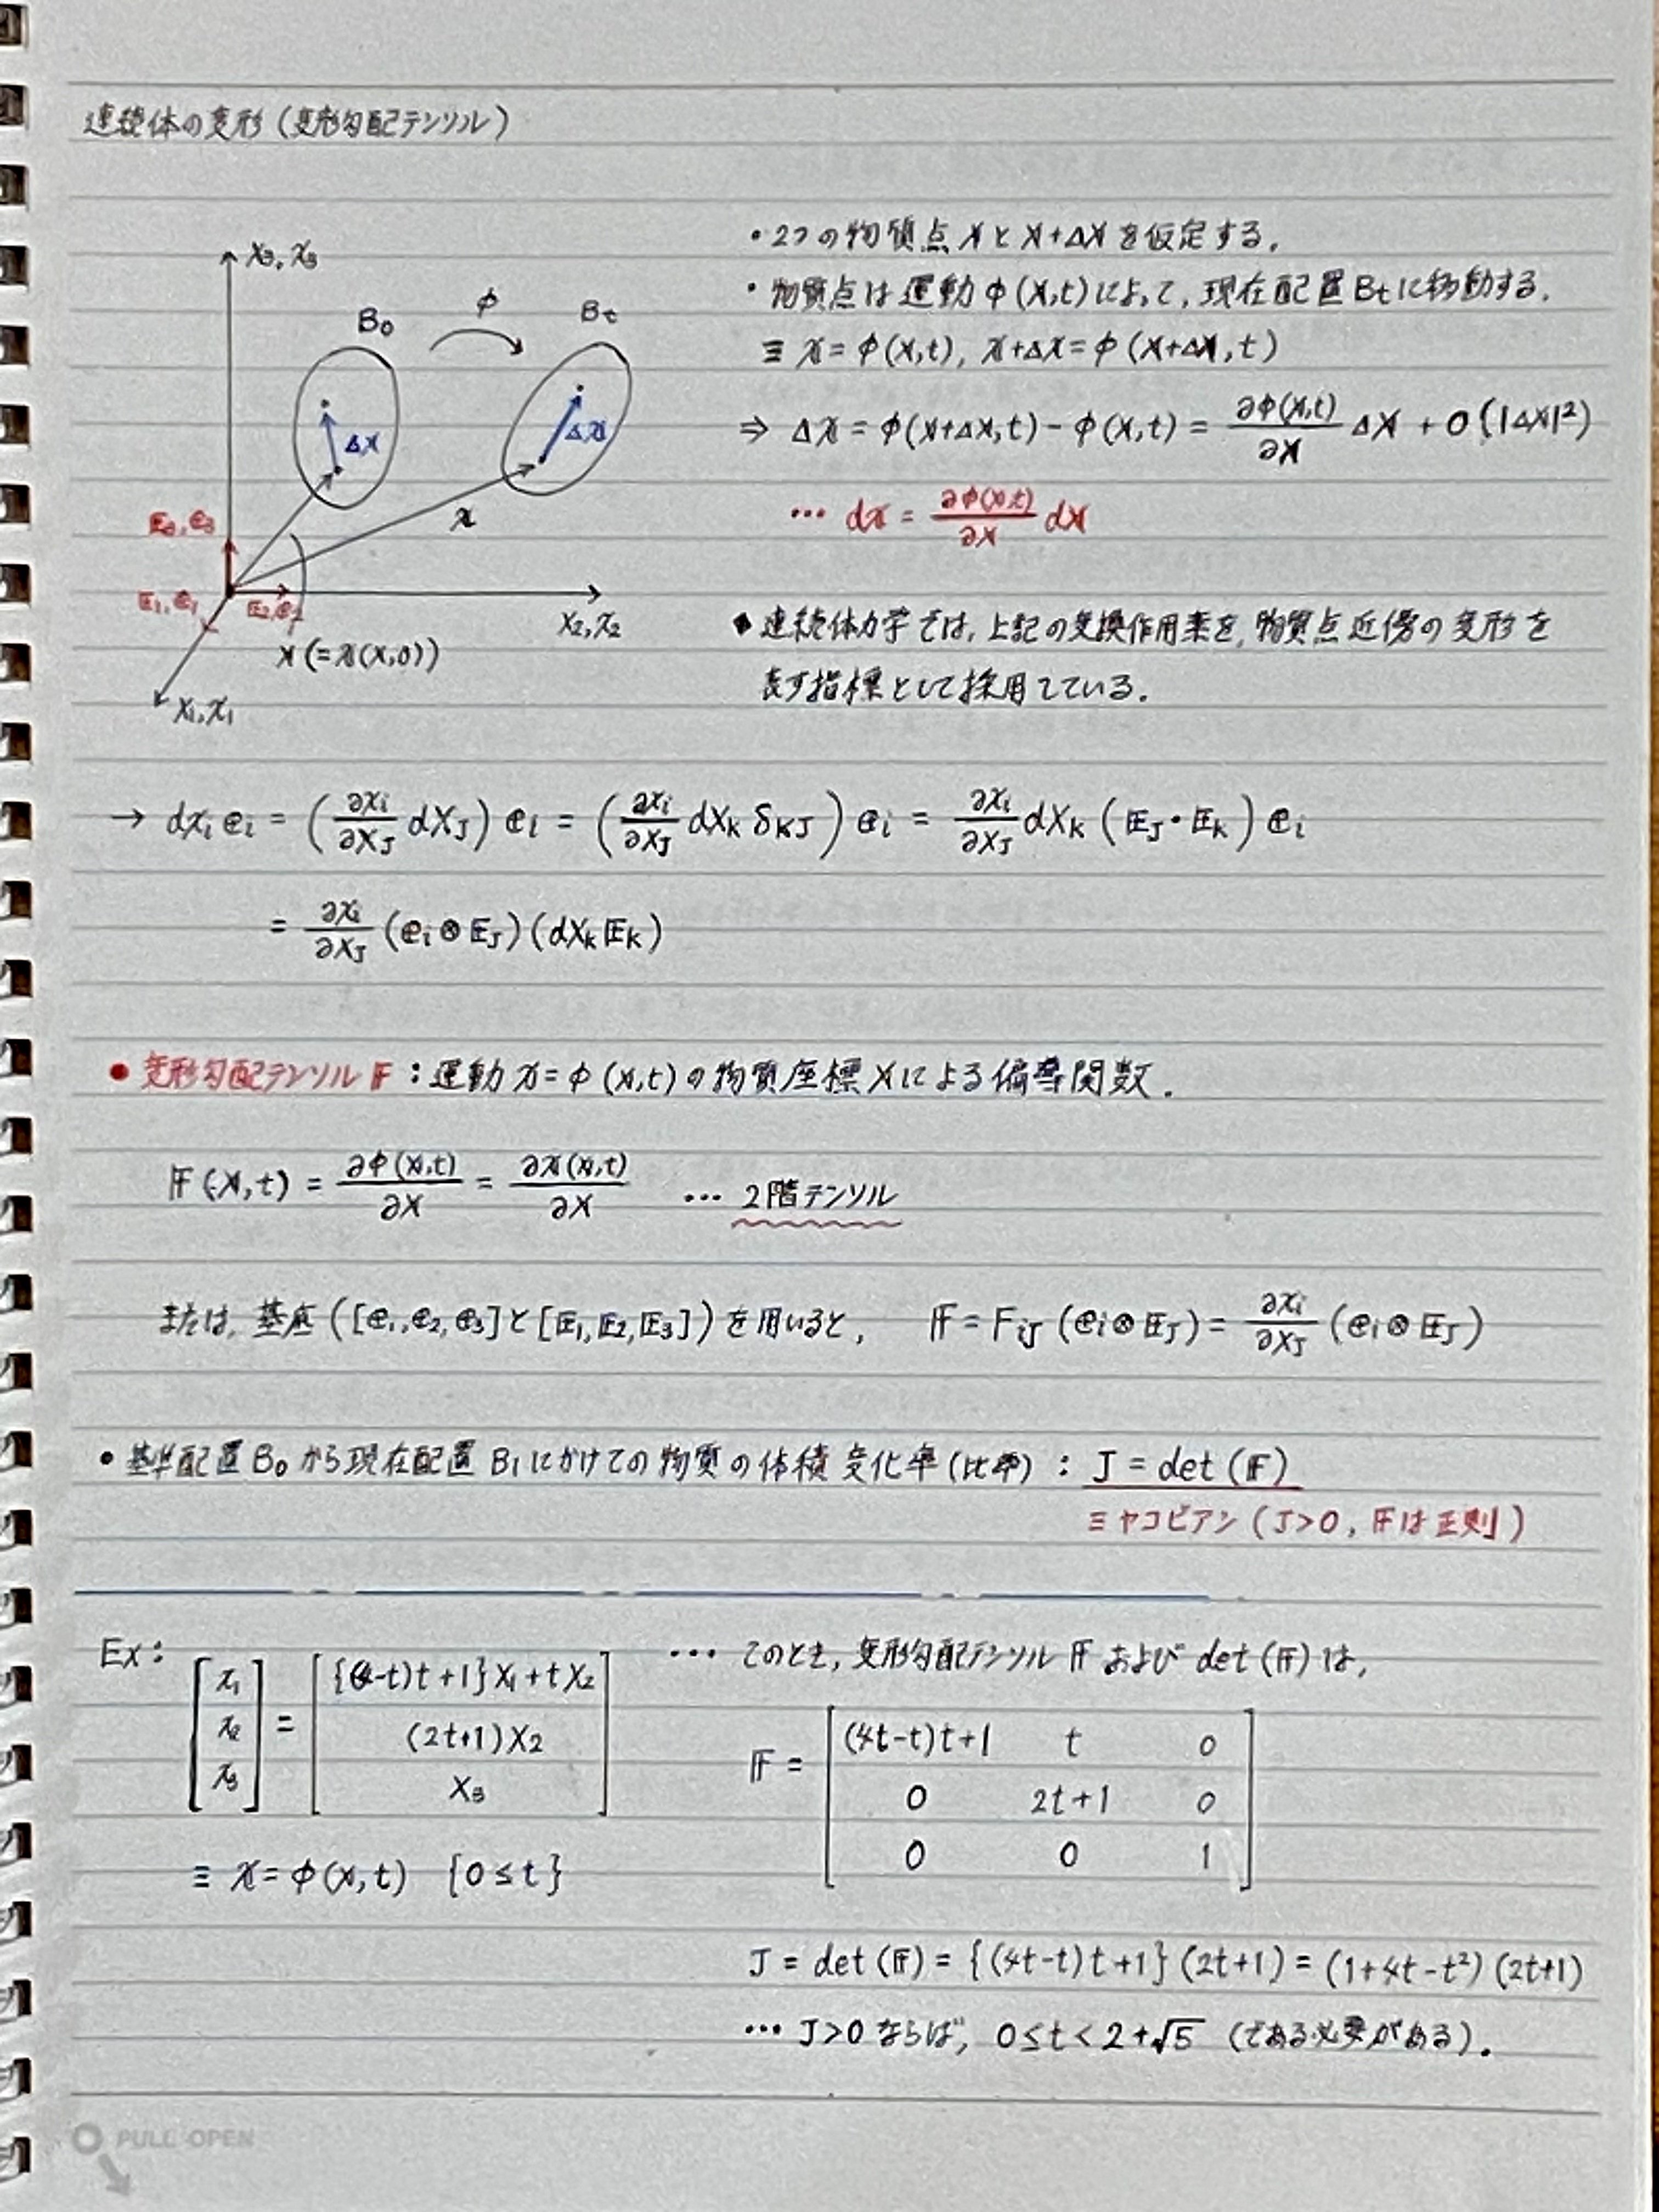 連続体の変形(変形勾配テンソル)
X₃, x₃
B₀
φ
Bt
ΔX
Δx
x
E₃, e₃
E₁, e₁
E₂, e₂
X₂, x₂
X(=x(X,0))
X₁, x₁
・2つの物質点 X と X+ΔX を仮定する.
・物質点は運動 φ(X,t)によって, 現在配置Btに移動する.
≡ x = φ(X,t), x+Δx = φ(X+ΔX,t)
⇒ Δx = φ(X+ΔX,t) - φ(X,t) = ∂φ(X,t)/∂X ΔX + O(|ΔX|²)
… dx = ∂φ(X,t)/∂X dX
◆ 連続体力学では, 上記の変換作用素を, 物質点近傍の変形を
表す指標として採用している.
→ dxᵢ eᵢ = (∂xᵢ/∂X_J dX_J) eᵢ = (∂xᵢ/∂X_J dX_K δ_KJ) eᵢ = ∂xᵢ/∂X_J dX_K (E_J・E_K) eᵢ
= ∂xᵢ/∂X_J (eᵢ⊗E_J)(dX_K E_K)
● 変形勾配テンソル F : 運動 x=φ(X,t)の物質座標Xによる偏導関数.
F(X,t) = ∂φ(X,t)/∂X = ∂x(X,t)/∂X … 2階テンソル
または, 基底([e₁,e₂,e₃]と[E₁,E₂,E₃])を用いると, F = F_iJ (eᵢ⊗E_J) = ∂xᵢ/∂X_J (eᵢ⊗E_J)
● 基準配置B₀から現在配置B₁にかけての物質の体積変化率(比率) : J = det(F)
≡ヤコビアン(J>0, Fは正則)
Ex:
[x₁ x₂ x₃] = [{(4-t)t+1}X₁+tX₂
(2t+1)X₂
X₃]
≡ x = φ(X,t) {0≤t}
… このとき, 変形勾配テンソル F および det(F)は,
F = [(4t-t)t+1 t 0
0 2t+1 0
0 0 1]
J = det(F) = {(4t-t)t+1}(2t+1) = (1+4t-t²)(2t+1)
… J>0 ならば, 0≤t<2+√5 (である必要がある).
PULL OPEN